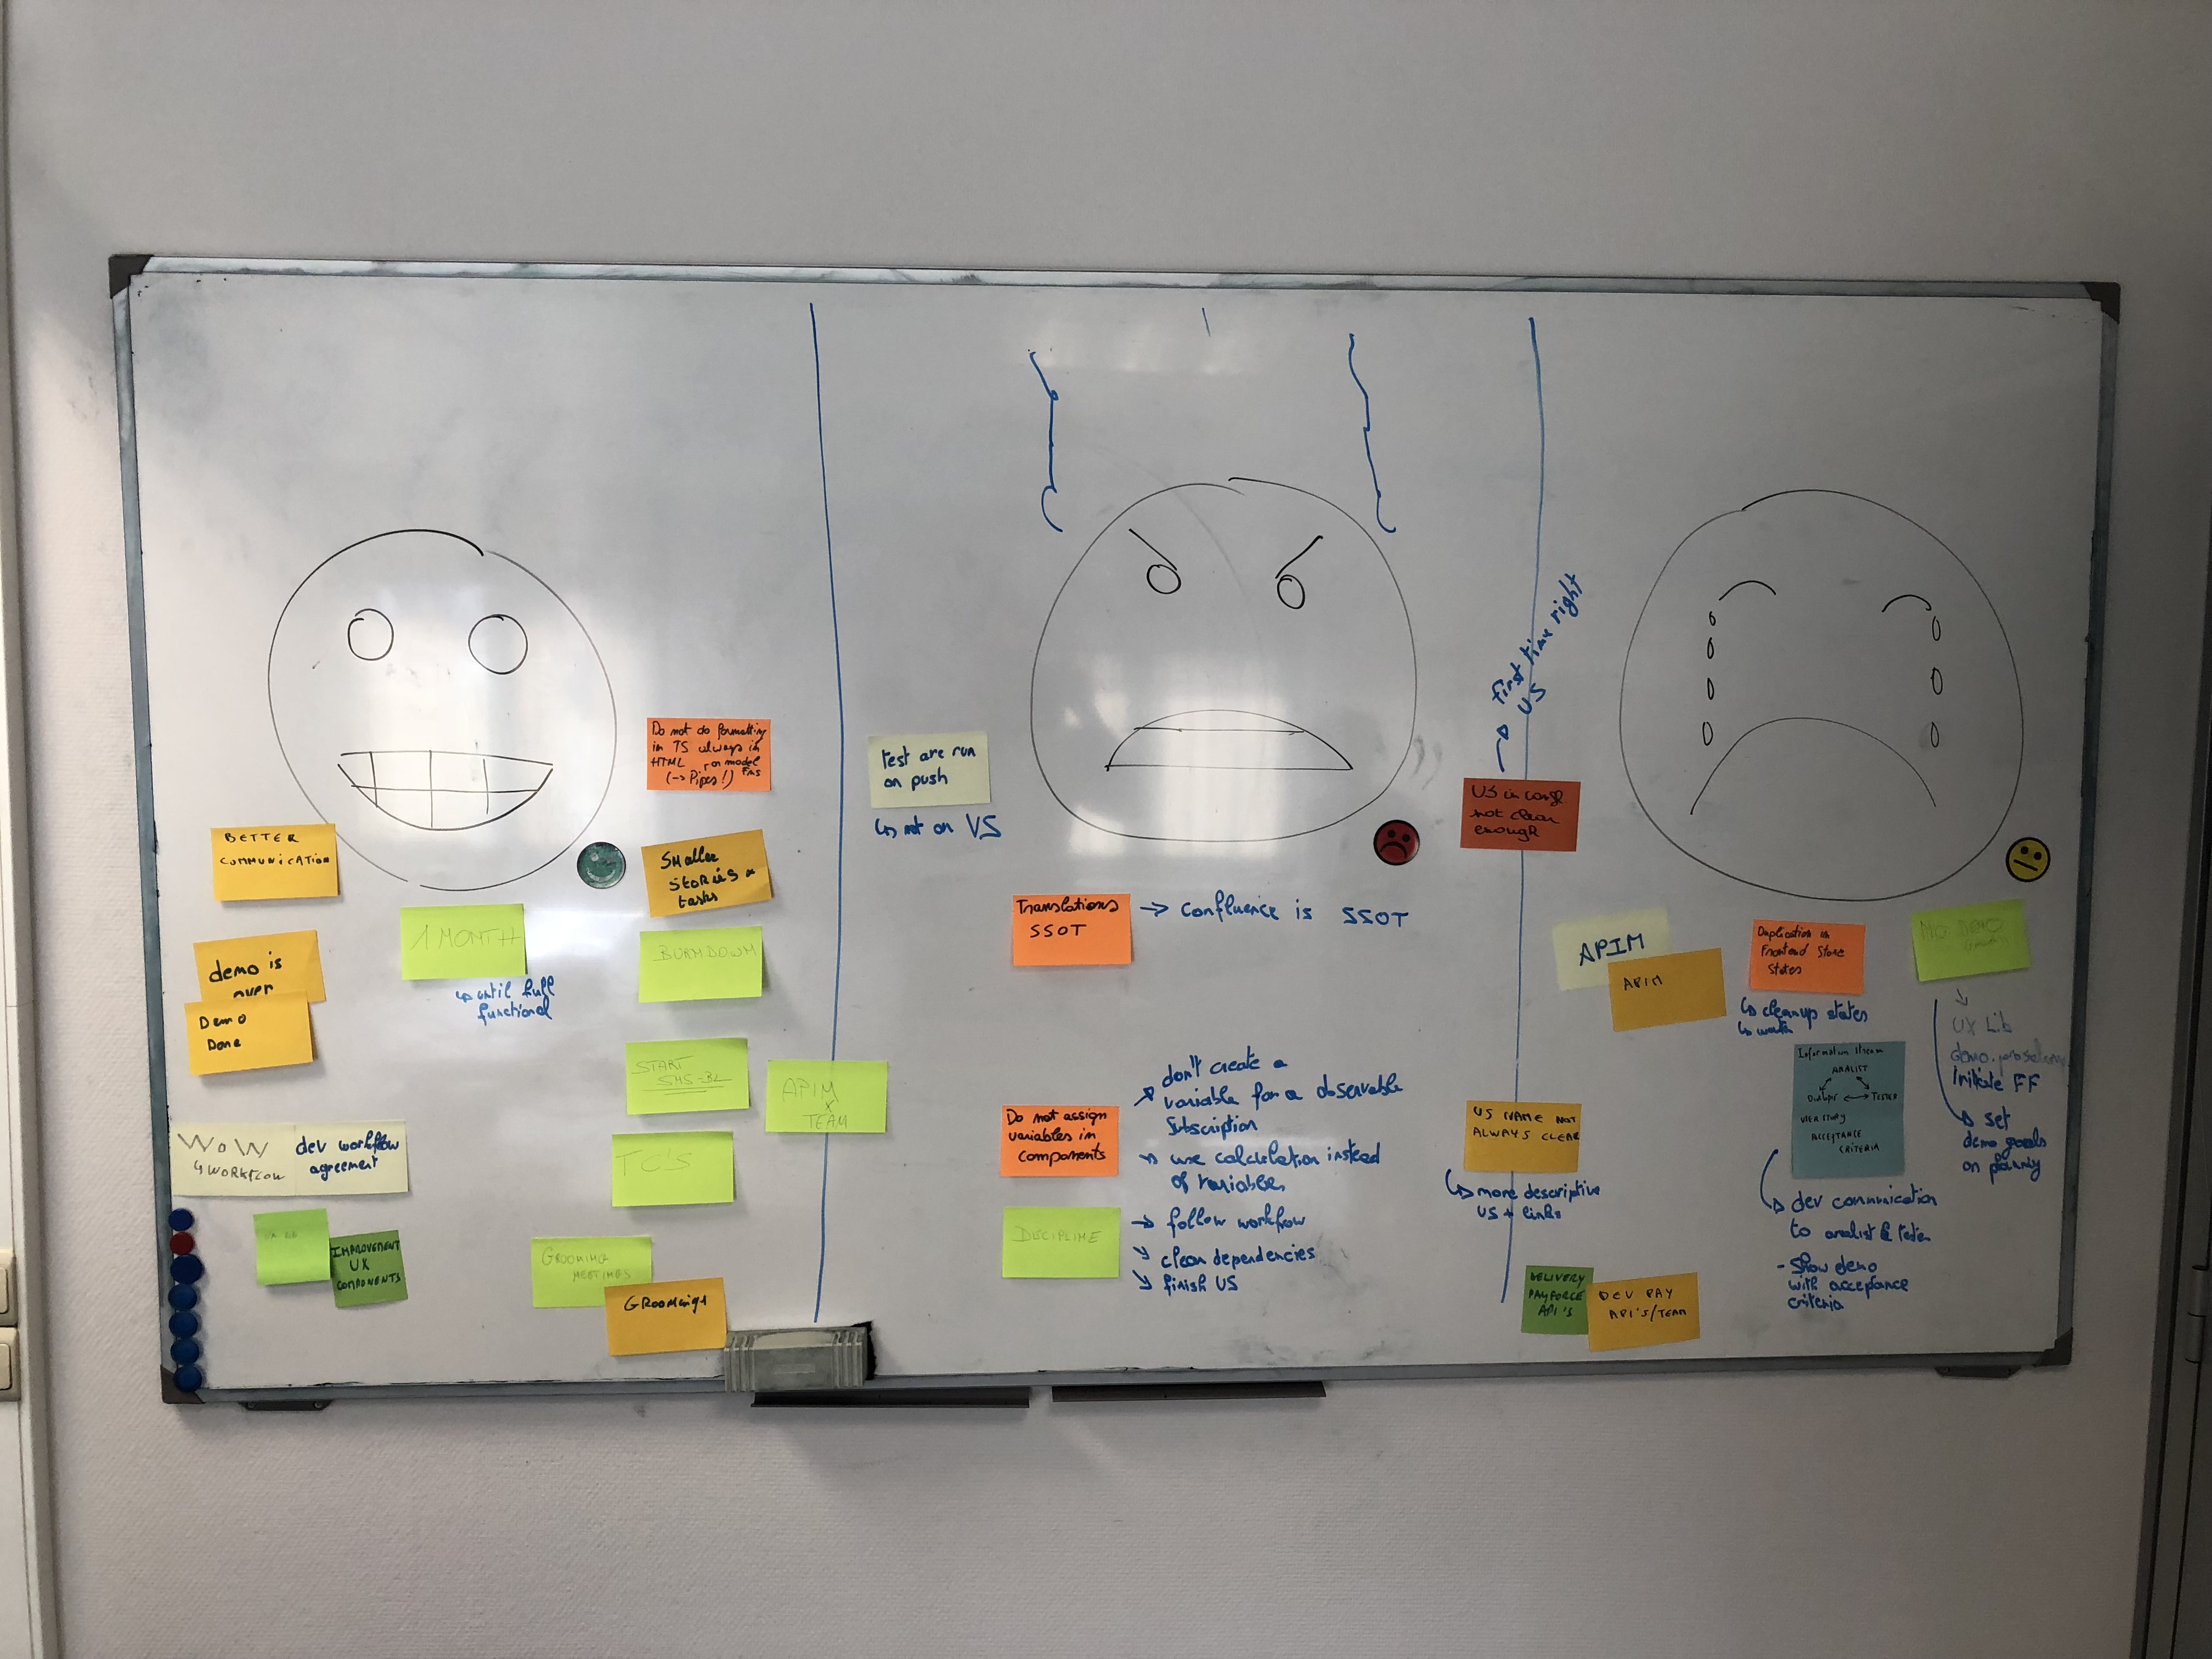 Do not do formatting
in TS always in
HTML or on model
(-> Pipes!)
BETTER
COMMUNICATION
Smaller
STORIES &
tasks
1 MONTH
↳ until full
functional
BURNDOWN
demo is
over
Demo
Done
START
SMS-BL
APIM
X
TEAM
WoW
↳ WORKFLOW
dev workflow
agreement
TC'S
IMPROVEMENT
UX
COMPONENTS
GROOMING
MEETINGS
GROOMING
test are run
on push
↳ not on VS
Translations
SSOT
→ confluence is SSOT
Do not assign
variables in
components
don't create a
variable for a observable
subscription
use calculation instead
of variables
DISCIPLINE
→ follow workflow
↘ clean dependencies
↘ finish US
first time right
US
US in
not clear
enough
US NAME NOT
ALWAYS CLEAR
↳ more descriptive
US + links
DELIVERY
PAYFORCE
API'S
DEV PAY
API'S/TEAM
APIM
APIM
Duplication in
Frontend Store
States
↳ cleanup states
Information stream
ANALIST
↔ TESTER
USER STORY
ACCEPTANCE
CRITERIA
dev communication
to analist & tester
- Show demo
with acceptance
criteria
NO DEMO
UX Lib
demo.
Initiate FF
set
demo goals
on planning